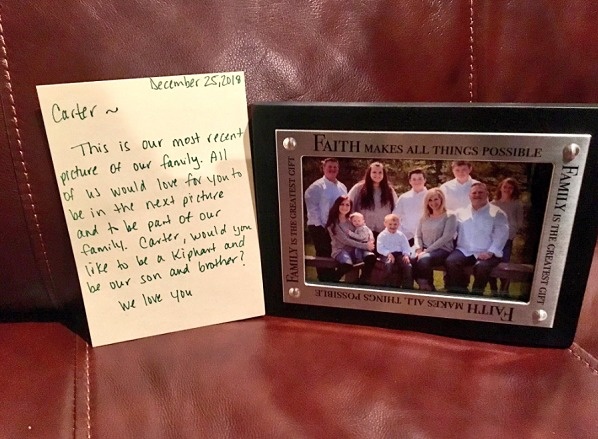 December 25, 2018
Carter ~
This is our most recent
picture of our family. All
of us would love for you to
be in the next picture
and to be part of our
family. Carter, would you
like to be a Kiphart and
be our son and brother?
We love you
FAITH MAKES ALL THINGS POSSIBLE
FAMILY IS THE GREATEST GIFT
FAMILY IS THE GREATEST GIFT
FAITH MAKES ALL THINGS POSSIBLE